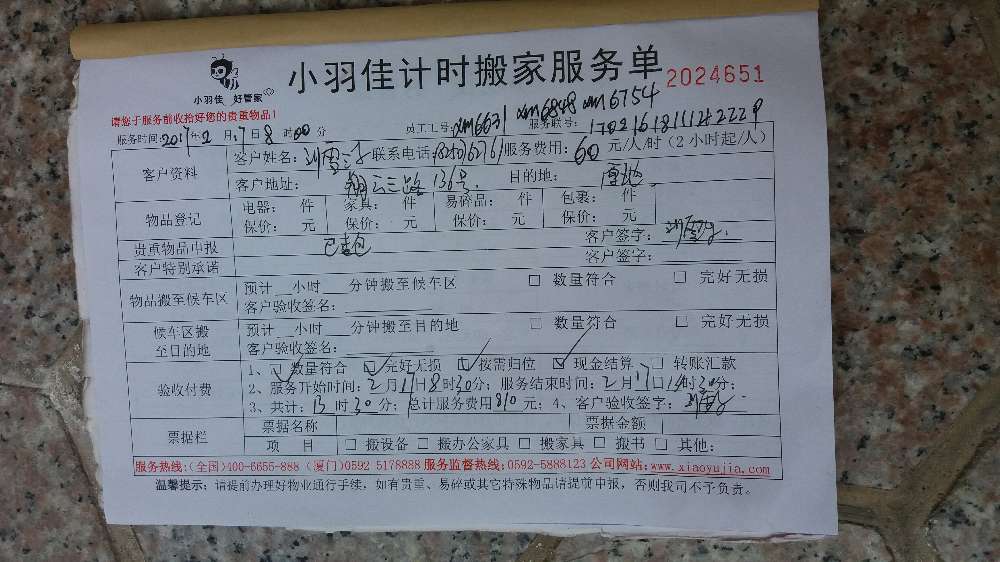 小羽佳计时搬家服务单 2024651
小羽佳 好管家
请您于服务前收拾好您的贵重物品!
员工工号: xm6631 xm6848 xm6754 服务联号:
服务时间: 2017年2月 日 8时00分
客户资料
客户姓名: 联系电话: 服务费用: 60元/人/时(2小时起/人)
客户地址: 翔云三路136号 目的地:
物品登记
电器: 件 家具: 件 易碎品: 件 包裹: 件
保价: 元 保价: 元 保价: 元 保价: 元
贵重物品申报 客户签字:
客户特别承诺 客户签字:
物品搬至候车区
预计__小时__分钟搬至候车区 □ 数量符合 □ 完好无损
客户验收签名:
候车区搬
至目的地
预计__小时__分钟搬至目的地 □ 数量符合 □ 完好无损
客户验收签名:
验收付费
1、☑数量符合 ☑完好无损 ☑按需归位 ☑现金结算 □ 转账汇款
2、服务开始时间: 2月 日8时30分; 服务结束时间: 2月 日 时30分;
3、共计: 13时30分; 总计服务费用810元; 4、客户验收签字:
票据栏
票据名称 票据金额
项 目 □ 搬设备 □ 搬办公家具 □ 搬家具 □ 搬书 □ 其他:
服务热线:(全国)400-6655-888 (厦门)0592 5178888 服务监督热线:0592-5888123 公司网站:www.xiaoyujia.com
温馨提示: 请提前办理好物业通行手续, 如有贵重、易碎或其它特殊物品请提前申报, 否则我司不予负责。